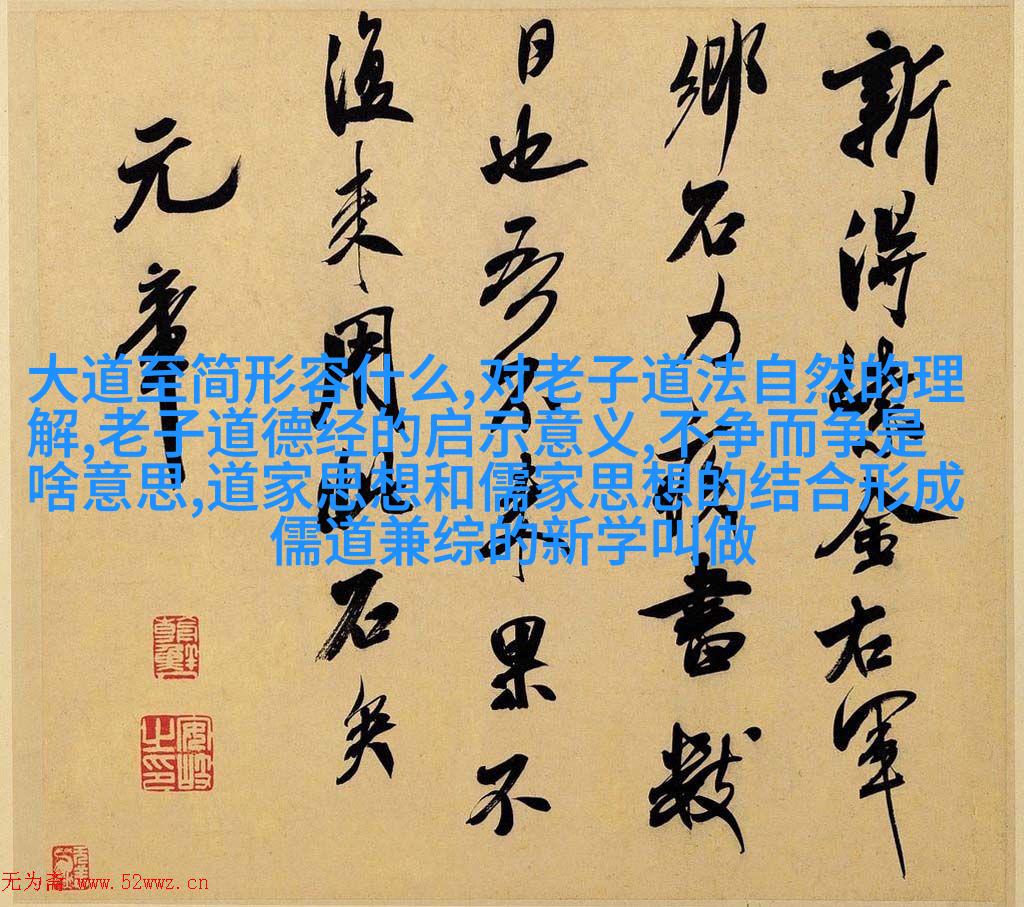 新得紫金右軍
鄉石力疾書數
日也吾不果不
復来用此石矣
元章
大道至简形容什么,对老子道法自然的理
解,老子道德经的启示意义,不争而争是
啥意思,道家思想和儒家思想的结合形成
儒道兼综的新学叫做
安岐之印
无为斋 www.52wwz.cn